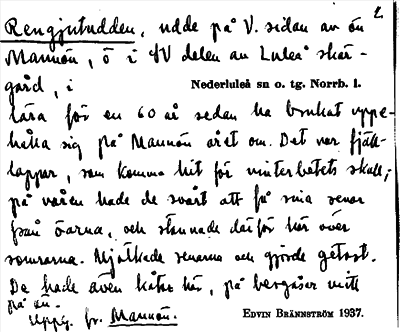 2
Rengjutudden, udde på V. sidan av ön
Mannön, ö i NV delen av Luleå skär-
gård, i Nederluleå sn o. tg. Norrb. l.
lära för en 60 år sedan ha brukat uppe-
hålla sig på Mannön året om. Det var fjäll-
lappar, som komma hit för vinterbetets skull;
på våren hade de svårt att få sina renar
från öarna, och stannade därför här över
somrarna. Mjölkade renarna och gjorde getost.
De hade även kåtor här, på bergåsar mitt
på ön.
Uppg. fr. Mannön.
EDVIN BRÄNNSTRÖM 1937.